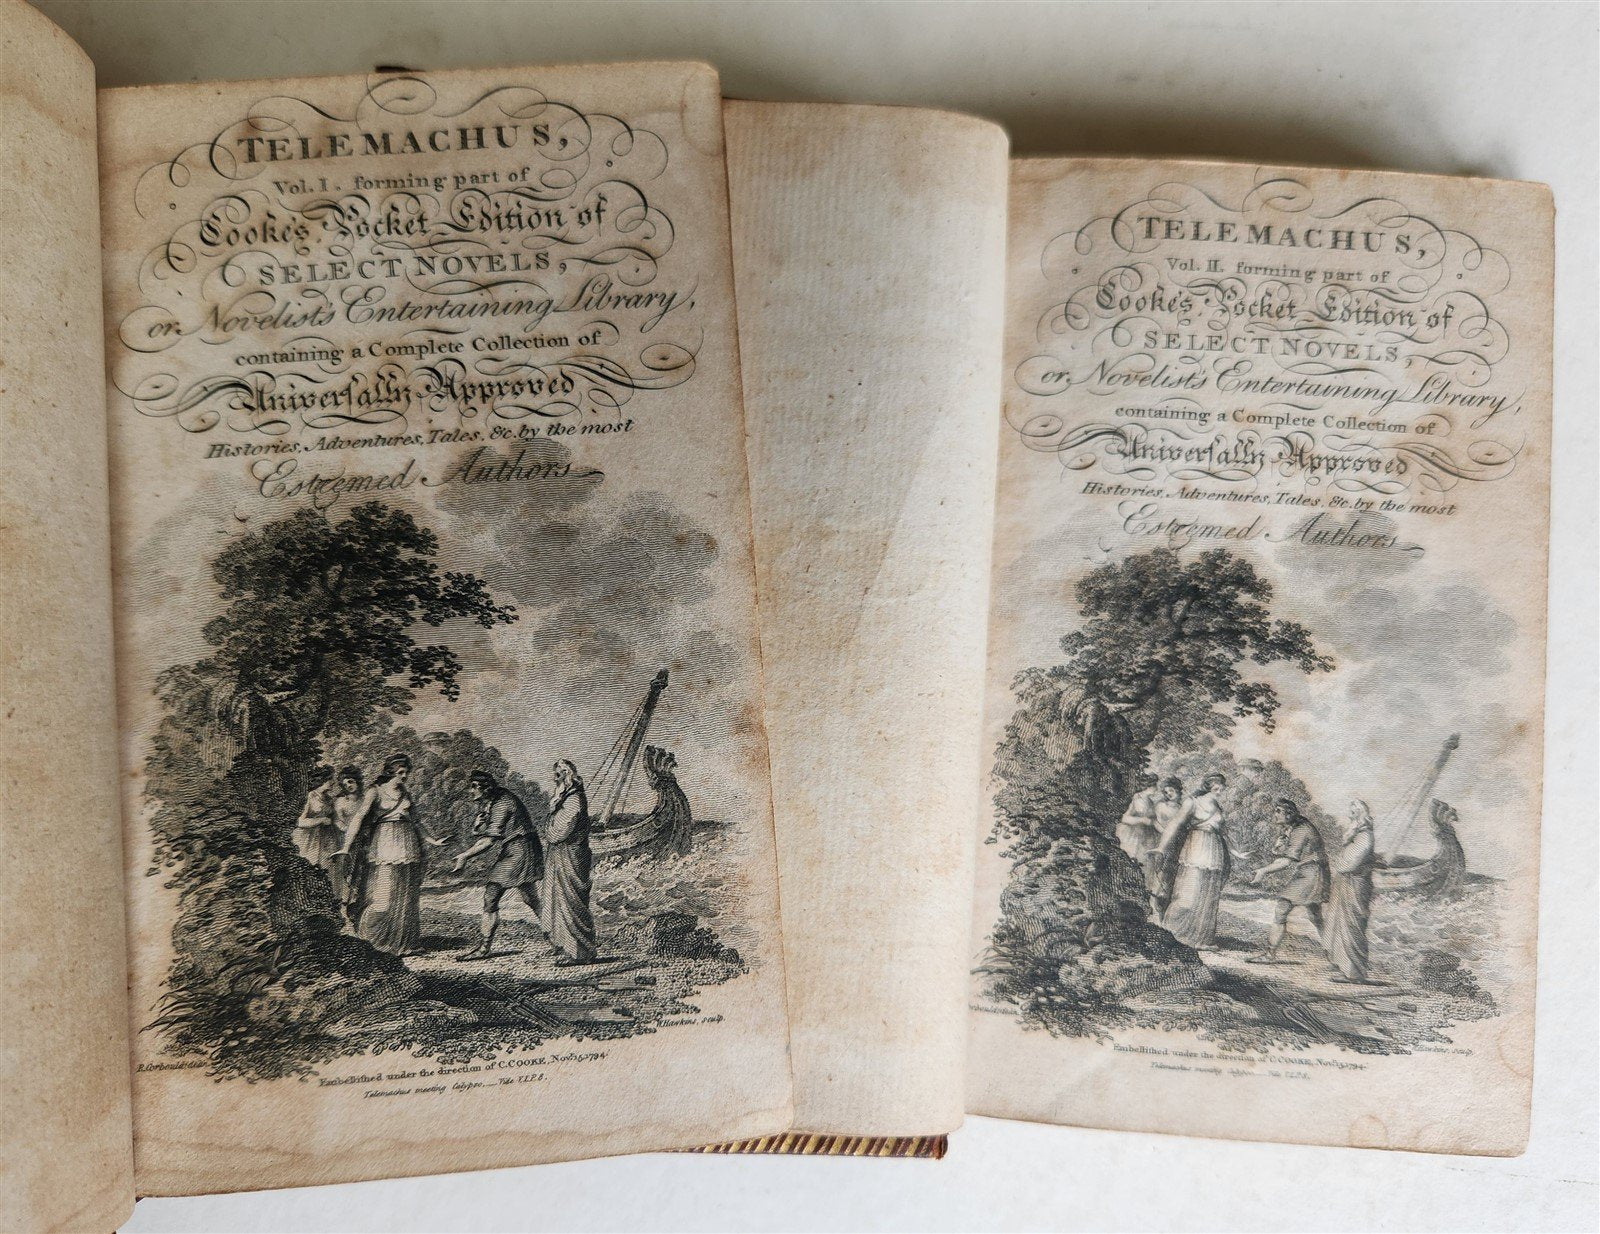 TELEMACHUS,
Vol. I. forming part of
Cooke's Pocket Edition of
SELECT NOVELS,
or Novelist's Entertaining Library,
containing a Complete Collection of
Universally Approved
Histories, Adventures, Tales, &c. by the most
Esteemed Authors
R. Corbould delin.
W. Hawkins, sculp.
Embellished under the direction of C. COOKE, Novr. 15, 1794.
Telemachus meeting Calypso,__Vide V.I. P. 8.
TELEMACHUS,
Vol. II. forming part of
Cooke's Pocket Edition of
SELECT NOVELS,
or Novelist's Entertaining Library,
containing a Complete Collection of
Universally Approved
Histories, Adventures, Tales, &c. by the most
Esteemed Authors
Hawkins, sculp.
Embellished under the direction of C. COOKE, Novr. 15, 1794.
Telemachus meeting Calypso __ Vide V.I. P. 8.